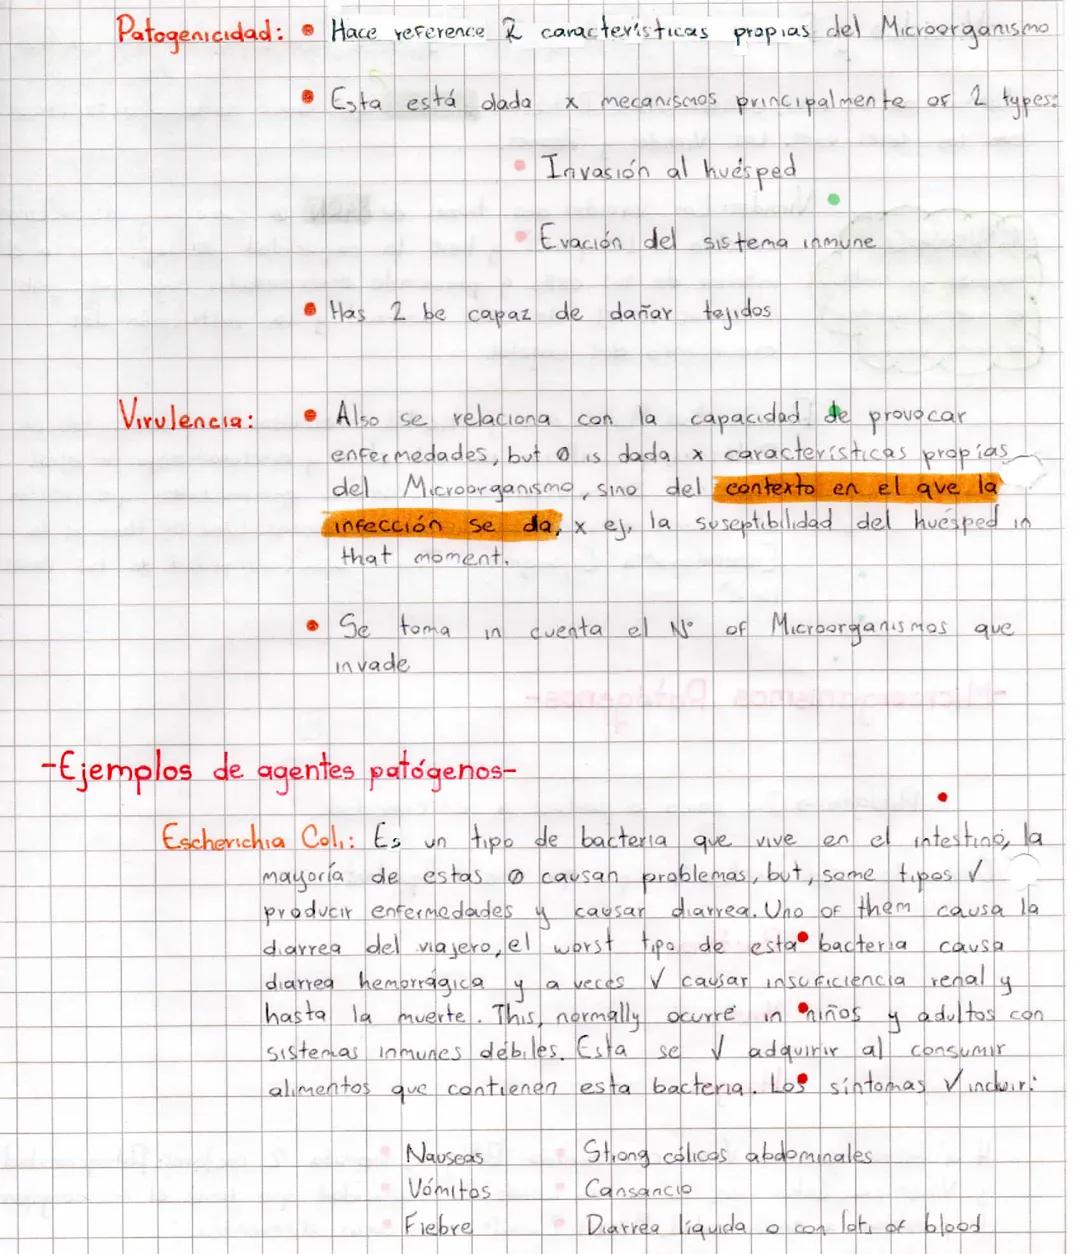 Patogenicidad: • Hace reference 2 características propias del Microorganismo
• Esta está dada x mecanismos principalmente of 2 types:
• Invasión al huésped
• Evación del sistema inmune
• Has 2 be capaz de dañar tejidos
Virulencia: • Also se relaciona con la capacidad de provocar
enfermedades, but Ø is dada x características propias
del Microorganismo, sino del contexto en el que la
infección se da, x ej, la suseptibilidad del huésped in
that moment.
• Se toma in cuenta el N° of Microorganismos que
invade
-Ejemplos de agentes patógenos-
Escherichia Coli: Es un tipo de bacteria que vive en el intestino, la
mayoría de estas Ø causan problemas, but, some tipos √
producir enfermedades y causar diarrea. Uno of them causa la
diarrea del viajero, el worst tipo de esta bacteria causa
diarrea hemorrágica y a veces √ causar insuficiencia renal y
hasta la muerte. This, normally ocurre in niños y adultos con
sistemas inmunes débiles. Esta se √ adquirir al consumir
alimentos que contienen esta bacteria. Los síntomas √ incluir:
• Nauseas • Strong cólicos abdominales
• Vómitos • Cansancio
• Fiebre • Diarrea líquida o con lots of blood